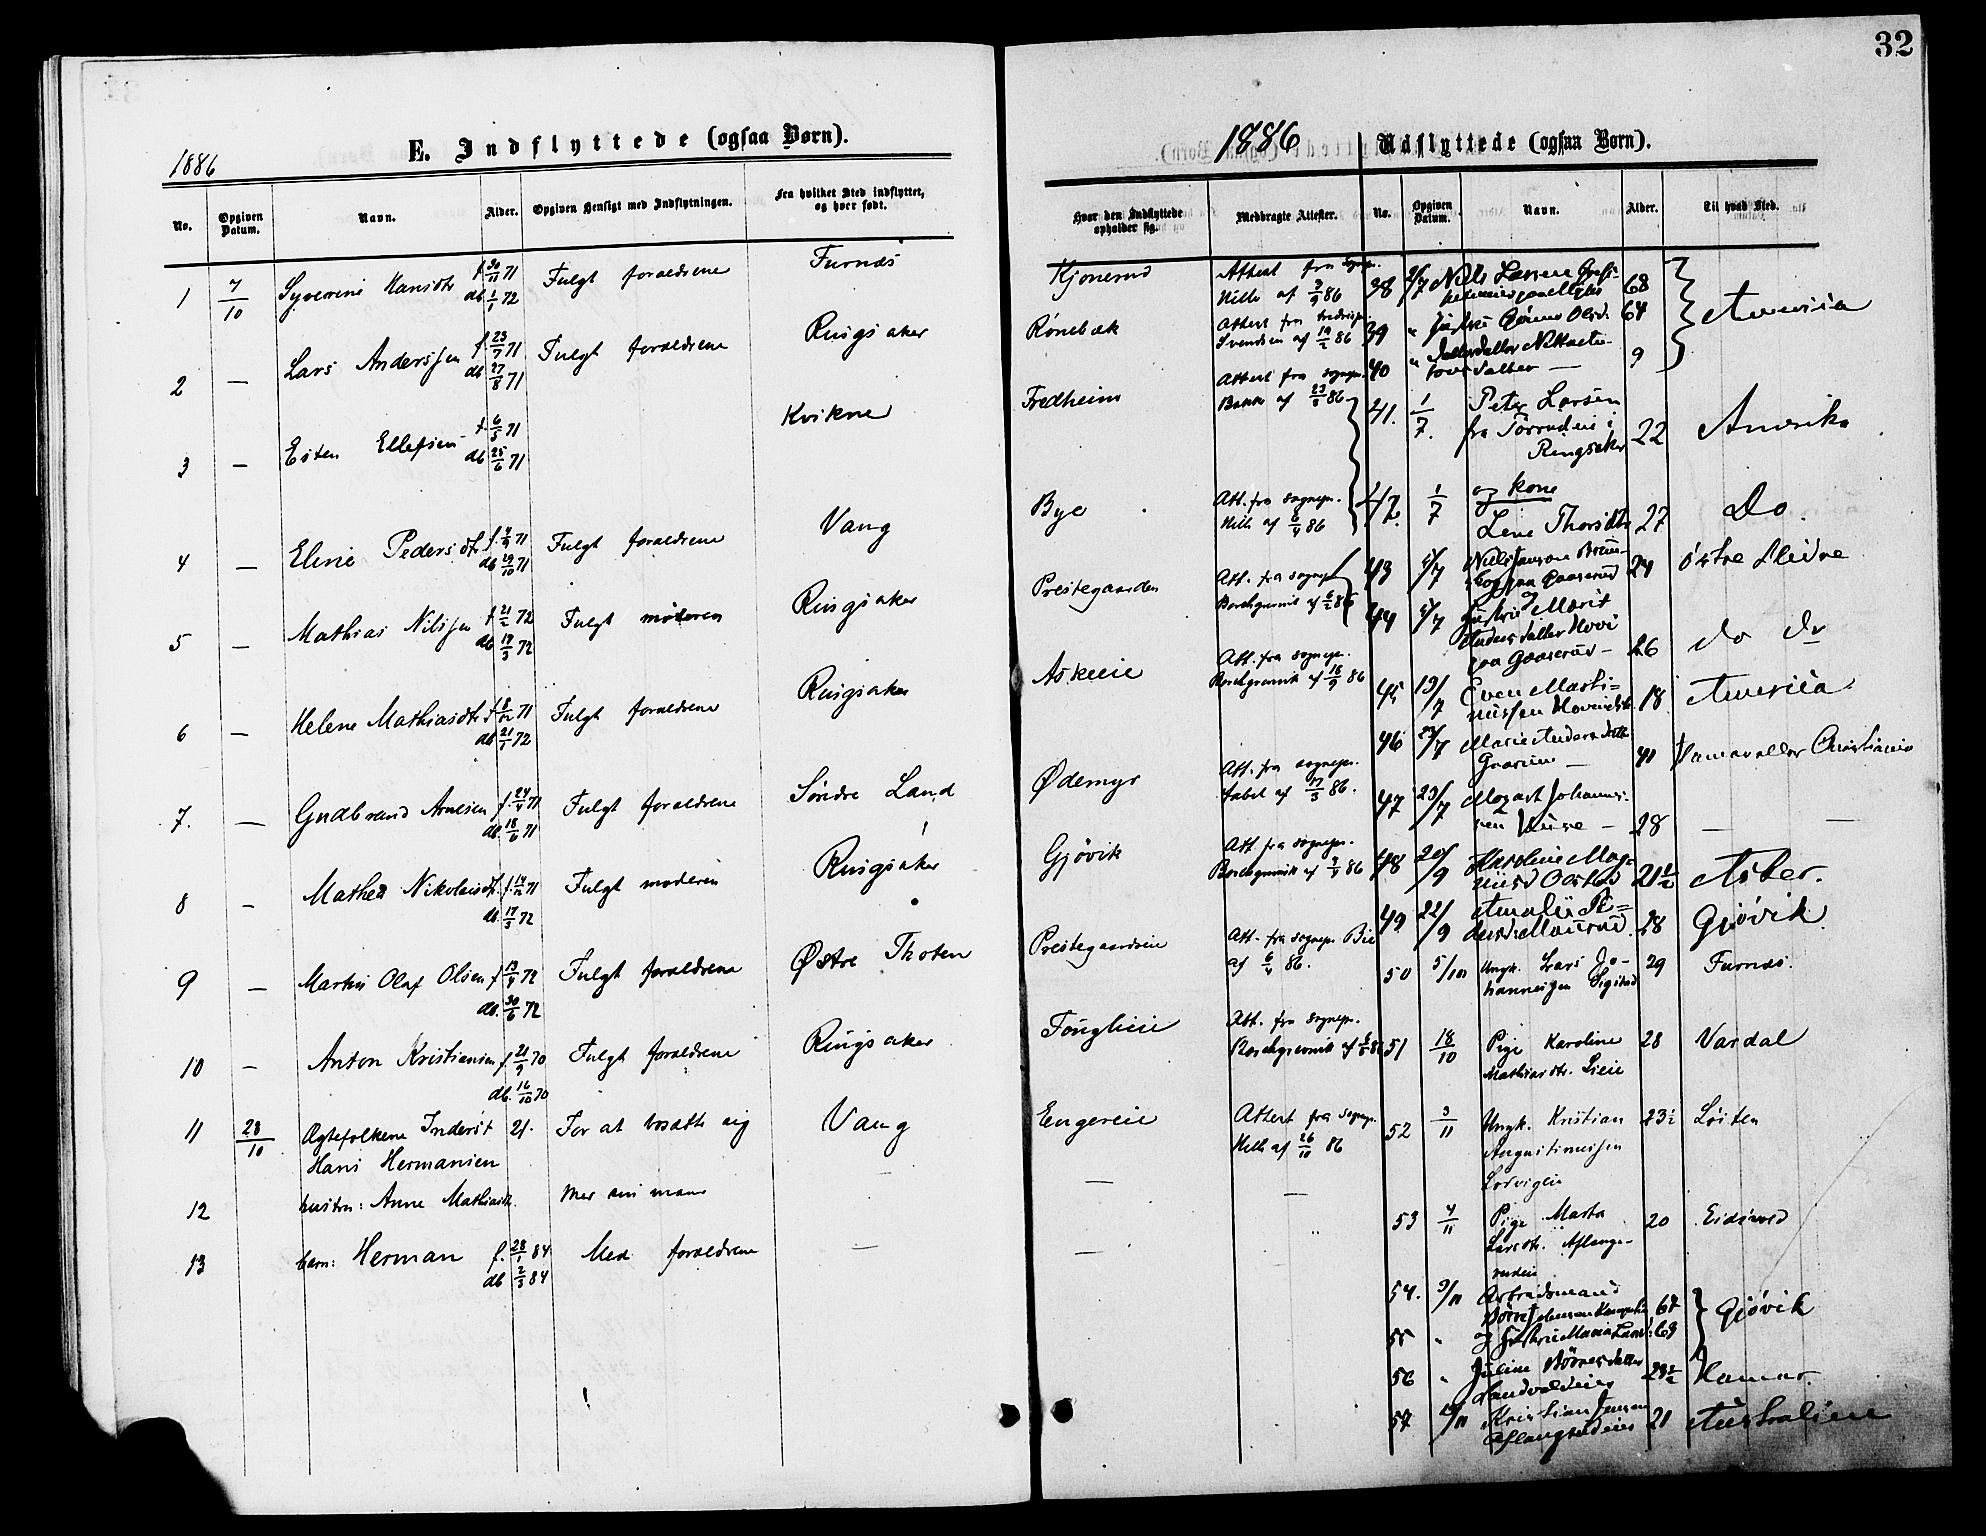 32
E. Indflyttede (ogsaa Børn).
1886
No.
Opgiven Datum.
Navn.
Alder.
Opgiven Hensigt med Indflytningen.
Fra hvilket Sted indflyttet, og hvor født.
1 7/10 Syverine Hansdtr f. 30/11 71 Fulgt forældrene Furnæs
db 1/1 72
2 — Lars Anderssen f. 23/7 71 Fulgt forældrene Ringsaker
db 27/8 71
3 — Esten Ellefsen f. 6/5 71 Kvikne
db 25/6 71
4 — Eline Pedersdtr f. 4/9 71 Fulgt forældrene Vang
db 19/10 71
5 — Mathias Nilssen f. 21/2 72 Fulgt moderen Ringsaker
db. 19/3 72
6 — Helene Mathiasdtr f. 8/12 71 Fulgt forældrene Ringsaker
db 21/1 72
7. — Gudbrand Arnesen f. 24/4 71 Fulgt forældrene Søndre Land
db. 18/6 71
8 — Mathea Nikolaisdtr. f. 14/12 71 Fulgt moderen Ringsaker
db. 17/3 72
9 — Martin Olaf Olsen f. 13/4 72 Fulgt forældrene Østre Thoten
db. 30/6 72
10 — Anton Kristiansen f. 21/9 70 Fulgt forældrene Ringsaker
db. 16/10 70
11 28/10 Ægtefolkene Inderst 21. For at bosætte sig Vang
Hans Hermansen
12 hustru: Anne Mathiasdtr. Med sin mand —
13 barn: Herman f. 28/1 84 Med forældrene —
db 2/3 84
1886 Udflyttede (ogsaa Børn).
Hvor den Indflyttede opholder sig.
Medbragte Attester.
No.
Opgiven Datum.
Navn.
Alder.
Til hvad Sted.
Kjonerud Attest fra sognepr.
Hille af 3/9 86
Rønebæk Attest fra
Svendsen af 19/2 86
Fredheim Attest fra sognepr.
af 23/8 86
Bye Att. fra sognepr.
Hille af 6/4 86
Prestegaarden Att. fra sognepr
Borchgrevink af 6/2 86
Askeeie Att. fra sognepr.
Borchgrevink af 18/9 86
Ødemyr Att. fra sognepr.
Gjøvik Att. fra sognepr.
Borchgrevink af 3/4 86
Prestegaardseie Att. fra sognepr Bie
af 6/4 86.
Att. fra sognepr.
Borchgrevink
Engereie Attest fra sognepr.
Hille af 26/10 86
— —
—
38 2/7 Niels Larsen 68
39 " 64 America
40 " 9
41. 1/7. Peter Larsen
fra i
Ringsaker 22 Amerika
42. 1/7 og kone
Lene Thorsdtr 27 Do.
43 5/7 Niels Jensen
paa Gaaserud 24 Østre Slidre
44 5/7 Marit
Andersdatter Hovi
paa Gaaserud — 26 do do
45 13/7 Even Marti=
nussen 18 America
46 23/7 Marie Andersdatter
— 41 Hamar eller Christiania
47 23/7 Mozart Johannes-
sen — 28 — —
48 20/9 Karoline Mag-
nusd 21½ Asker.
49 22/9 Amalie Pe=
dersd. 28 Gjøvik.
50 5/10 Ungk. Lars Jo-
hannessen 29 Furnæs.
51 18/10 Pige Karoline 28 Vardal
Mathiasdtr. Lieie
52 3/11 Ungk. Kristian 23½ Løiten
Augustinussen
53 4/11 Pige Marta 20 Eidsvold
Larsdtr. Aflange-
rudeie
54. 9/11 Arbeidsmand
67 Gjøvik
55 " og Hustru Maria Larsd: 69
56 " Juline Børresdatter 23½ Hamar.
57 Kristian Jensen 21 Australien
Aflangrudeie